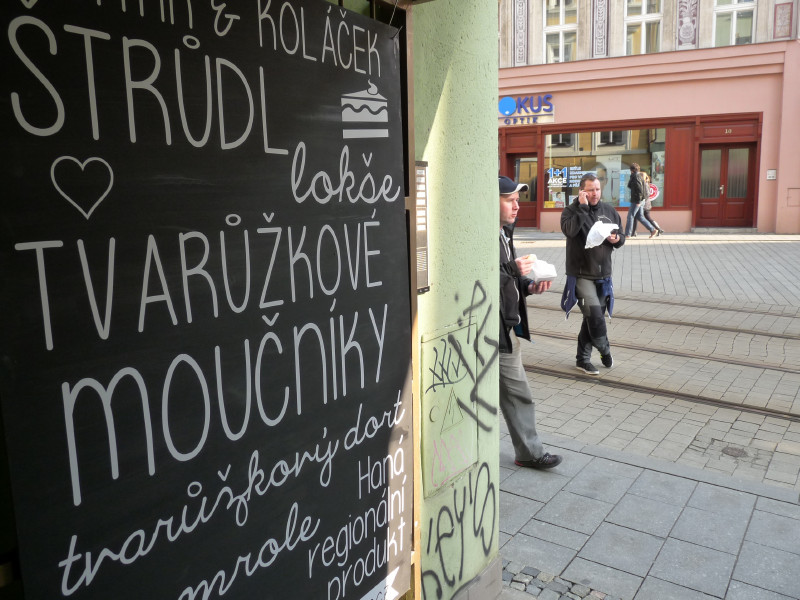 & KOLÁČEK
ŠTRŮDL
lokše
TVARŮŽKOVÉ
MOUČNÍKY
tvarůžkový dort
mrole
Haná
regionální
produkt
OKUS
OPTIK
1+1
AKCE